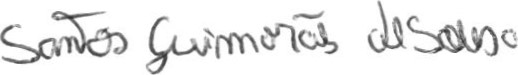 Santos Guimarães de Sousa